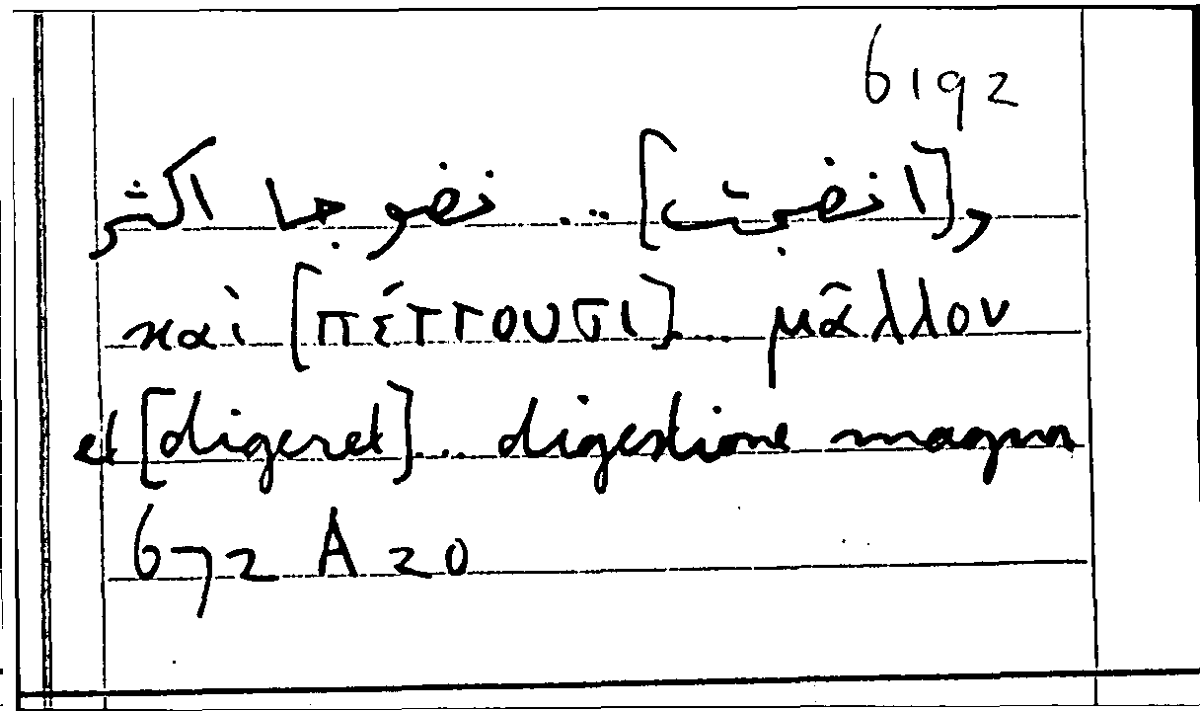 6192
و[انضجت] ... نضوجا اكثر
καὶ [πέττουσι] .... μᾶλλον
et [digeret] .... digestione magna
672 A 20